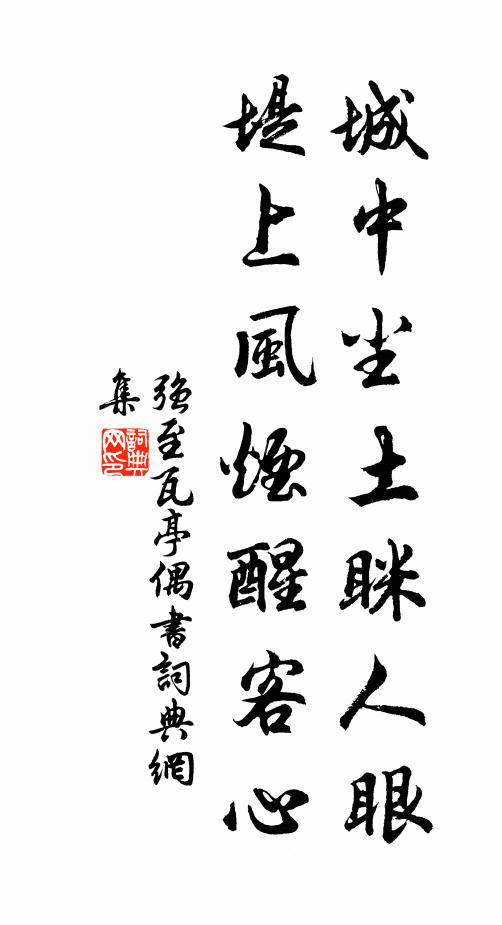 城中尘土眯人眼
堤上風煙醒客心
強至瓦亭偶書詞典網
集
詞典
网印